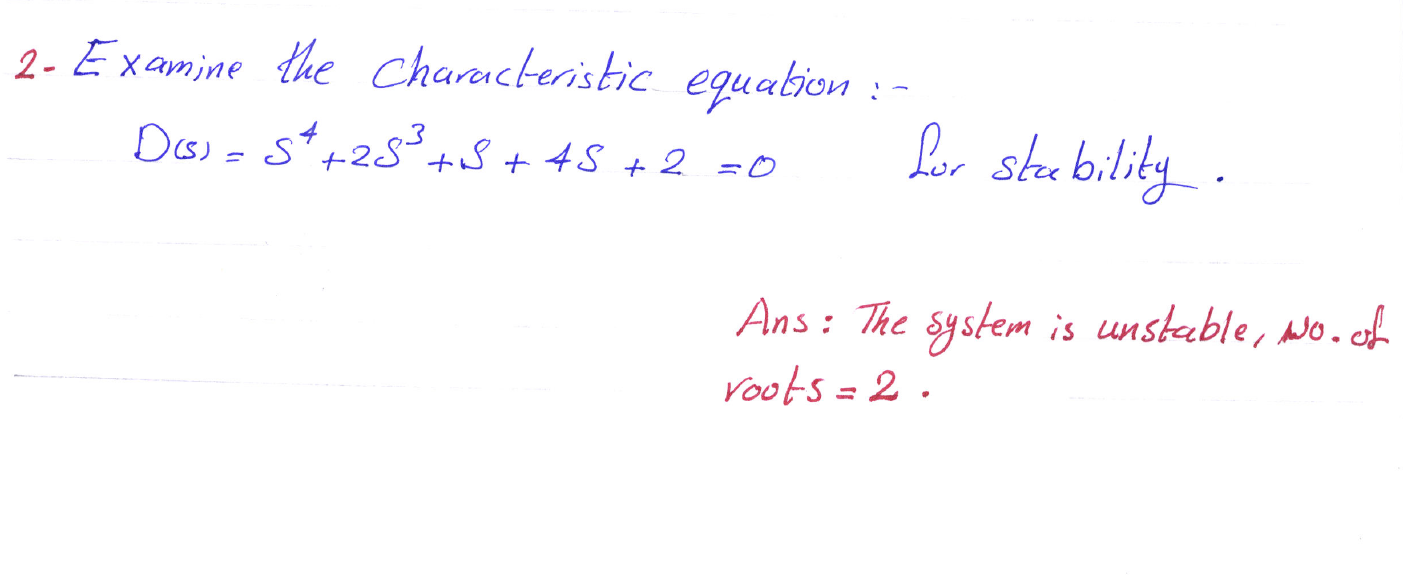 2- Examine the characteristic equation :-
D(s) = S⁴ + 2S³ + S + 4S + 2 = 0 for stability .
Ans : The system is unstable, No. of
roots = 2 .